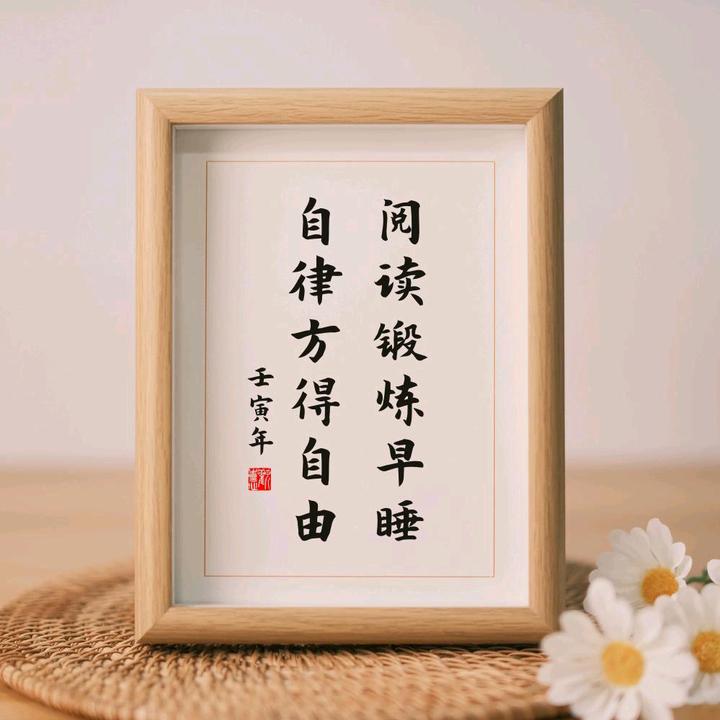 阅读锻炼早睡
自律方得自由
壬寅年